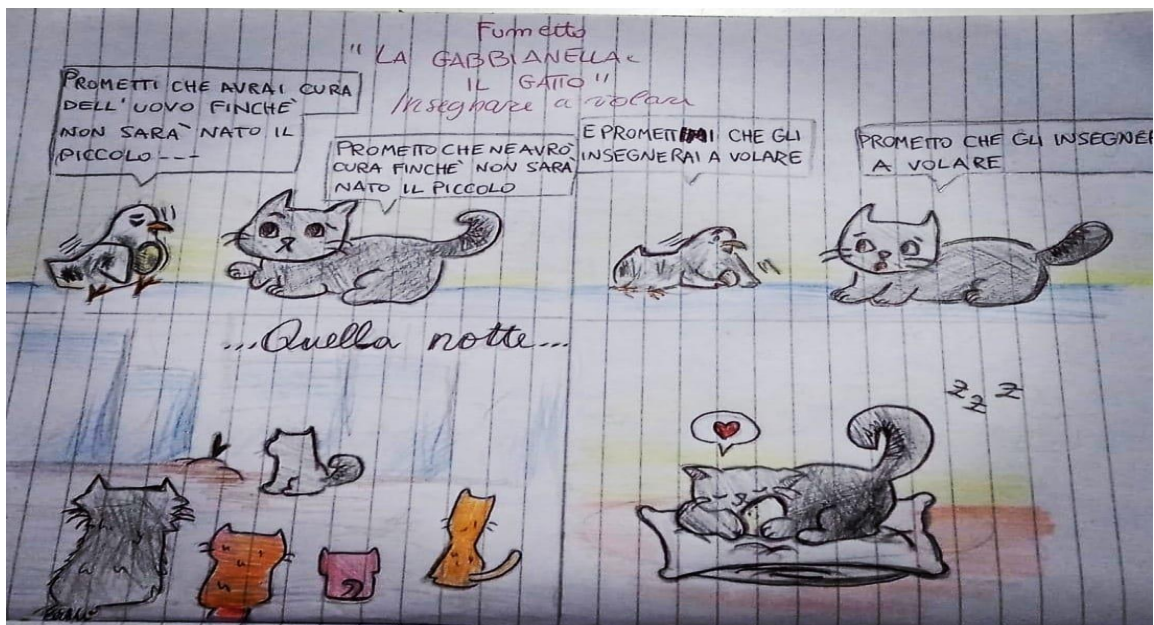 Fumetto
"LA GABBIANELLA e
IL GATTO"
Insegnare a volare
PROMETTI CHE AVRAI CURA
DELL'UOVO FINCHÈ
NON SARÀ NATO IL
PICCOLO---
PROMETTO CHE NE AVRÒ
CURA FINCHÈ NON SARÀ
NATO IL PICCOLO
E PROMETTIMI CHE GLI
INSEGNERAI A VOLARE
PROMETTO CHE GLI INSEGNE
A VOLARE
...Quella notte...
z z z